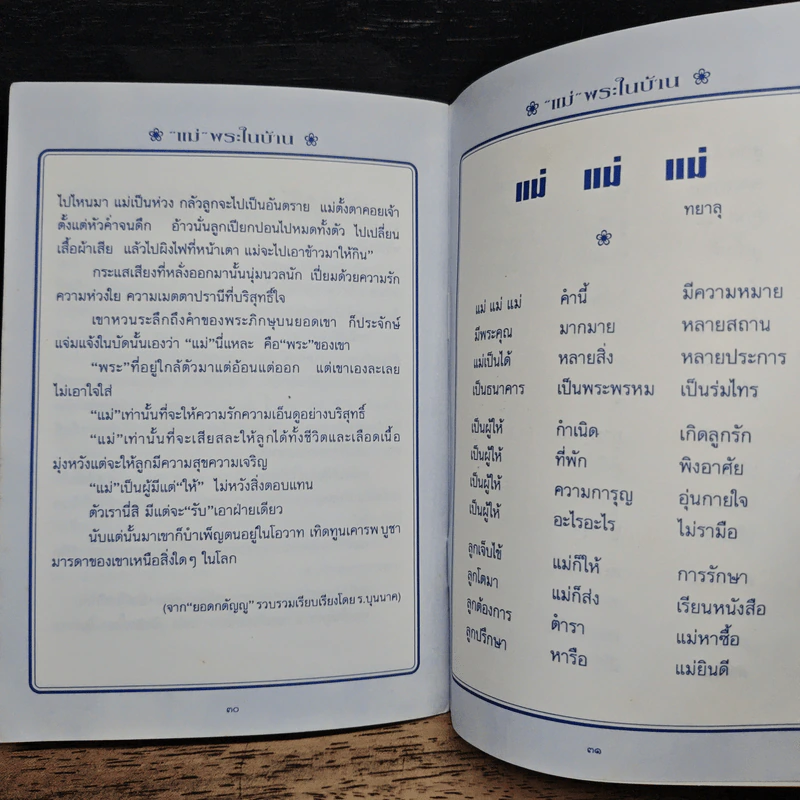 "แม่" พระในบ้าน
ไปไหนมา แม่เป็นห่วง กลัวลูกจะไปเป็นอันตราย แม่ตั้งตาคอยเจ้า
ตั้งแต่หัวค่ำจนดึก อ้าวนั่นลูกเปียกปอนไปหมดทั้งตัว ไปเปลี่ยน
เสื้อผ้าเสีย แล้วไปผิงไฟที่หน้าเตา แม่จะไปเอาข้าวมาให้กิน"
กระแสเสียงที่หลั่งออกมานั้นนุ่มนวลนัก เปี่ยมด้วยความรัก
ความห่วงใย ความเมตตาปรานีที่บริสุทธิ์ใจ
เขาหวนระลึกถึงคำของพระภิกษุบนยอดเขา ก็ประจักษ์
แจ่มแจ้งในบัดนั้นเองว่า "แม่"นี่แหละ คือ"พระ"ของเขา
"พระ"ที่อยู่ใกล้ตัวมาแต่อ้อนแต่ออก แต่เขาเองละเลย
ไม่เอาใจใส่
"แม่"เท่านั้นที่จะให้ความรักความเอ็นดูอย่างบริสุทธิ์
"แม่"เท่านั้นที่จะเสียสละให้ลูกได้ทั้งชีวิตและเลือดเนื้อ
มุ่งหวังแต่จะให้ลูกมีความสุขความเจริญ
"แม่"เป็นผู้มีแต่"ให้" ไม่หวังสิ่งตอบแทน
ตัวเรานี่สิ มีแต่จะ"รับ"เอาฝ่ายเดียว
นับแต่นั้นมาเขาก็บำเพ็ญตนอยู่ในโอวาท เทิดทูนเคารพบูชา
มารดาของเขาเหนือสิ่งใดๆ ในโลก
(จาก"ยอดกตัญญู" รวบรวมเรียบเรียงโดย ร.บุนนาค)
๓๐
"แม่" พระในบ้าน
แม่ แม่ แม่
ทยาลุ
แม่ แม่ แม่ คำนี้ มีความหมาย
มีพระคุณ มากมาย หลายสถาน
แม่เป็นได้ หลายสิ่ง หลายประการ
เป็นธนาคาร เป็นพระพรหม เป็นร่มไทร
เป็นผู้ให้ กำเนิด เกิดลูกรัก
เป็นผู้ให้ ที่พัก พิงอาศัย
เป็นผู้ให้ ความการุญ อุ่นกายใจ
เป็นผู้ให้ อะไรอะไร ไม่รามือ
ลูกเจ็บไข้ แม่ก็ให้ การรักษา
ลูกโตมา แม่ก็ส่ง เรียนหนังสือ
ลูกต้องการ ตำรา แม่หาซื้อ
ลูกปรึกษา หารือ แม่ยินดี
๓๑